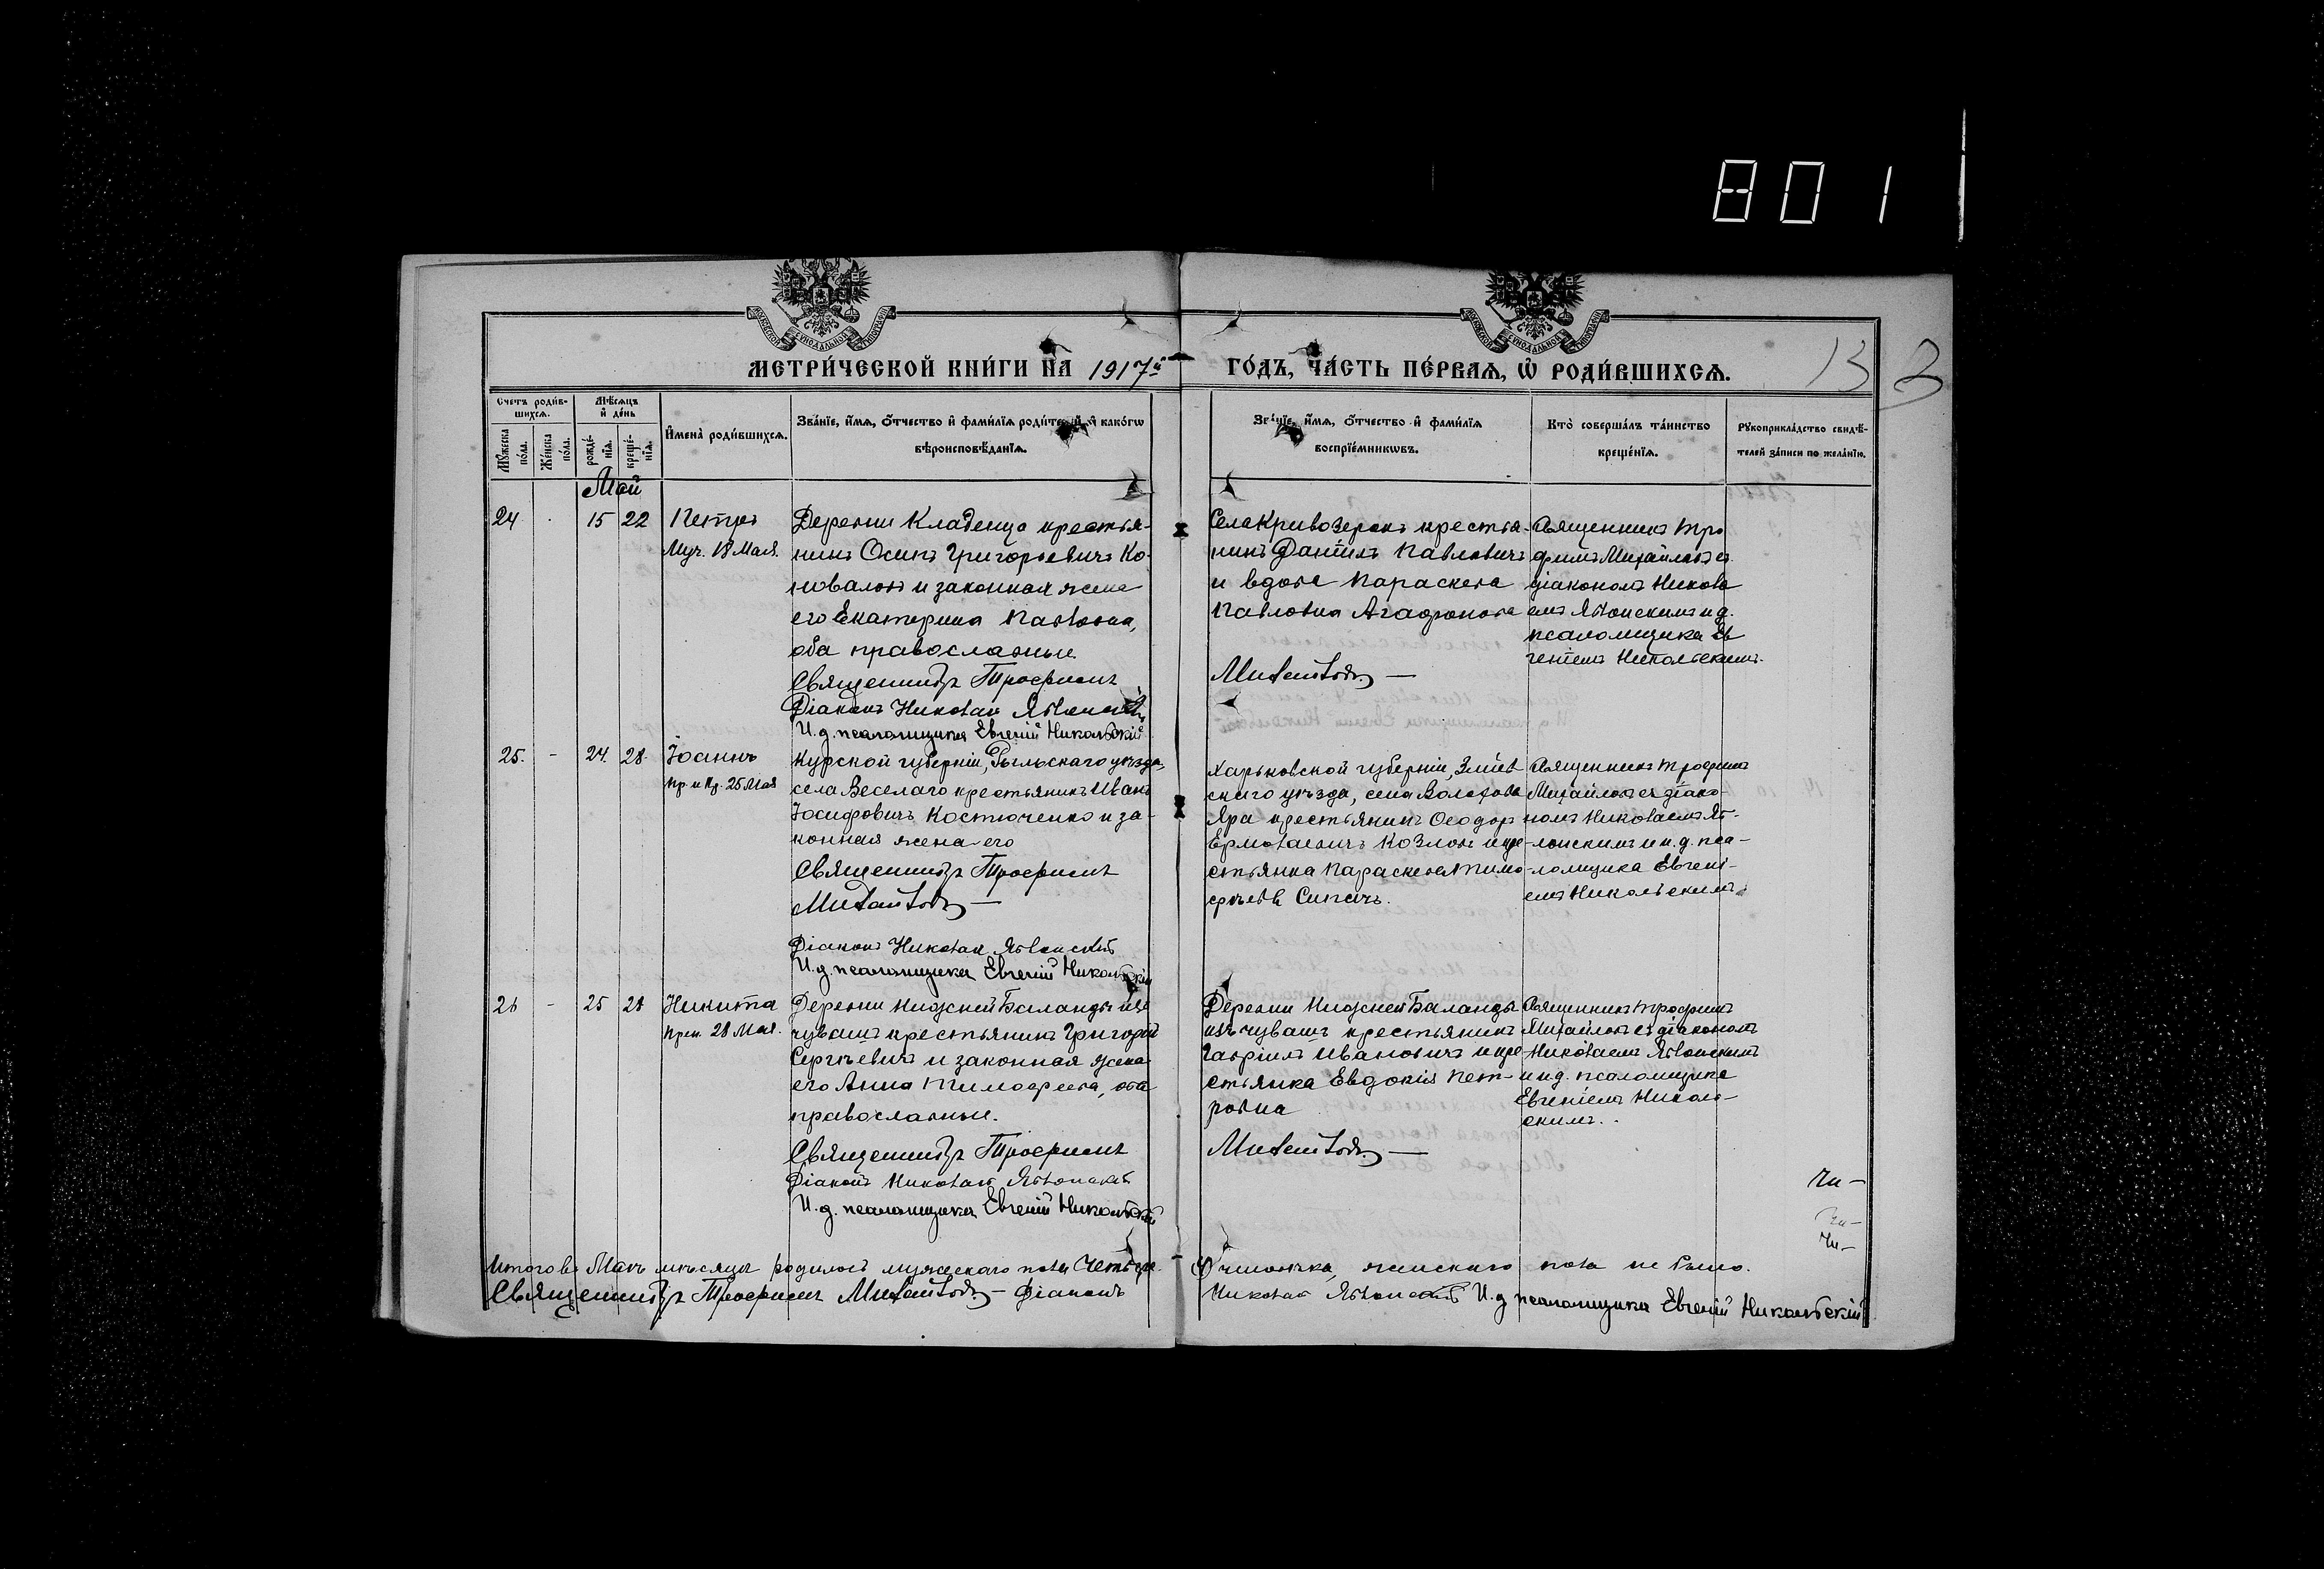 801
МЕТРИ́ЧЕСКОЙ КНИ́ГИ НА 1917й
ГО́ДЪ, ЧА́СТЬ ПЕ́РВАЯ, Ѡ РОДИ́ВШИХСЯ.
13
Счетъ роди́в-
шихся.
Мꙋжеска по́ла.
Же́нска по́ла.
Мѣ́сяцъ и де́нь
рожде́-
нїя.
креще́-
нїя.
Имена̀ роди́вшихся.
Зва́нїе, и́мя, о́тчество и фами́лїя роди́телей, и како́гѡ
вѣроисповѣ́данїя.
Зва́нїе, и́мя, о́тчество и фами́лїя
воспрїе́мникѡвъ.
Кто̀ соверша́лъ та́инство
креще́нїя.
Рꙋкоприкла́дство свидѣ́-
телей за́писи по жела́нїю.
Май
24 . 15 22
Петръ
Муч. 18 Мая.
Деревни Кладенца крестья-
нинъ Осипъ Григорьевичъ Ко-
новаловъ и законная жена
его Екатерина Павловна,
оба православные
Священникъ Трофимъ
Діаконъ Николай Явлонскій
И. д. псаломщика Евгеній Никольскій
Села Кривозерокъ крестья-
нинъ Даніилъ Павловичъ
и вдова Параскева
Павловна Агафонова
Михайловъ —
Священникъ Тро
фимъ Михайловъ съ
діакономъ Никола
емъ Явлонскимъ и д.
псаломщика Ев
геніемъ Никольскимъ.
25. - 24. 28.
Іоаннъ
Пр. и Кр. 25 Мая
Курской губерніи, Рыльскаго уѣзда,
села Веселаго крестьянинъ Иванъ
Іосифовичъ Костюченко и за-
конная жена его
Священникъ Трофимъ
Михайловъ —
Діаконъ Николай Явлонскій
И. д. псаломщика Евгеній Никольскій
Харьковской губерніи, Зміев
скаго уѣзда, села Волохова
Яра крестьянинъ Ѳеодоръ
Ермолаевичъ Козловъ и кре-
стьянка Параскева Тимо-
фѣева Сипачъ.
Священникъ Трофимъ
Михайловъ съ діако-
номъ Николаемъ Яв-
лонскимъ и и. д. пса-
ломщика Евгені-
емъ Никольскимъ.
26 - 25 28
Никита
Преп. 28 Мая.
Деревни Нижней Баланды изъ
чувашъ крестьянинъ Григорій
Сергѣевичъ и законная жена
его Анна Тимофеева, оба
православные.
Священникъ Трофимъ
Діаконъ Николай Явлонскій
И. д. псаломщика Евгеній Никольскій
Деревни Нижней Баланды
изъ чувашъ крестьянинъ
Гавріилъ Ивановичъ и кре-
стьянка Евдокія Пет-
ровна
Михайловъ —
Священникъ Трофимъ
Михайловъ съ діакономъ
Николаемъ Явлонскимъ
и и д. псаломщика
Евгеніемъ Николь-
скимъ.
Итого въ Маѣ мѣсяцѣ родилось мужескаго пола четыре
человѣка, женскаго пола не было.
Священникъ Трофимъ Михайловъ — Діаконъ
Николай Явлонскій И. д псаломщика Евгеній Никольскій